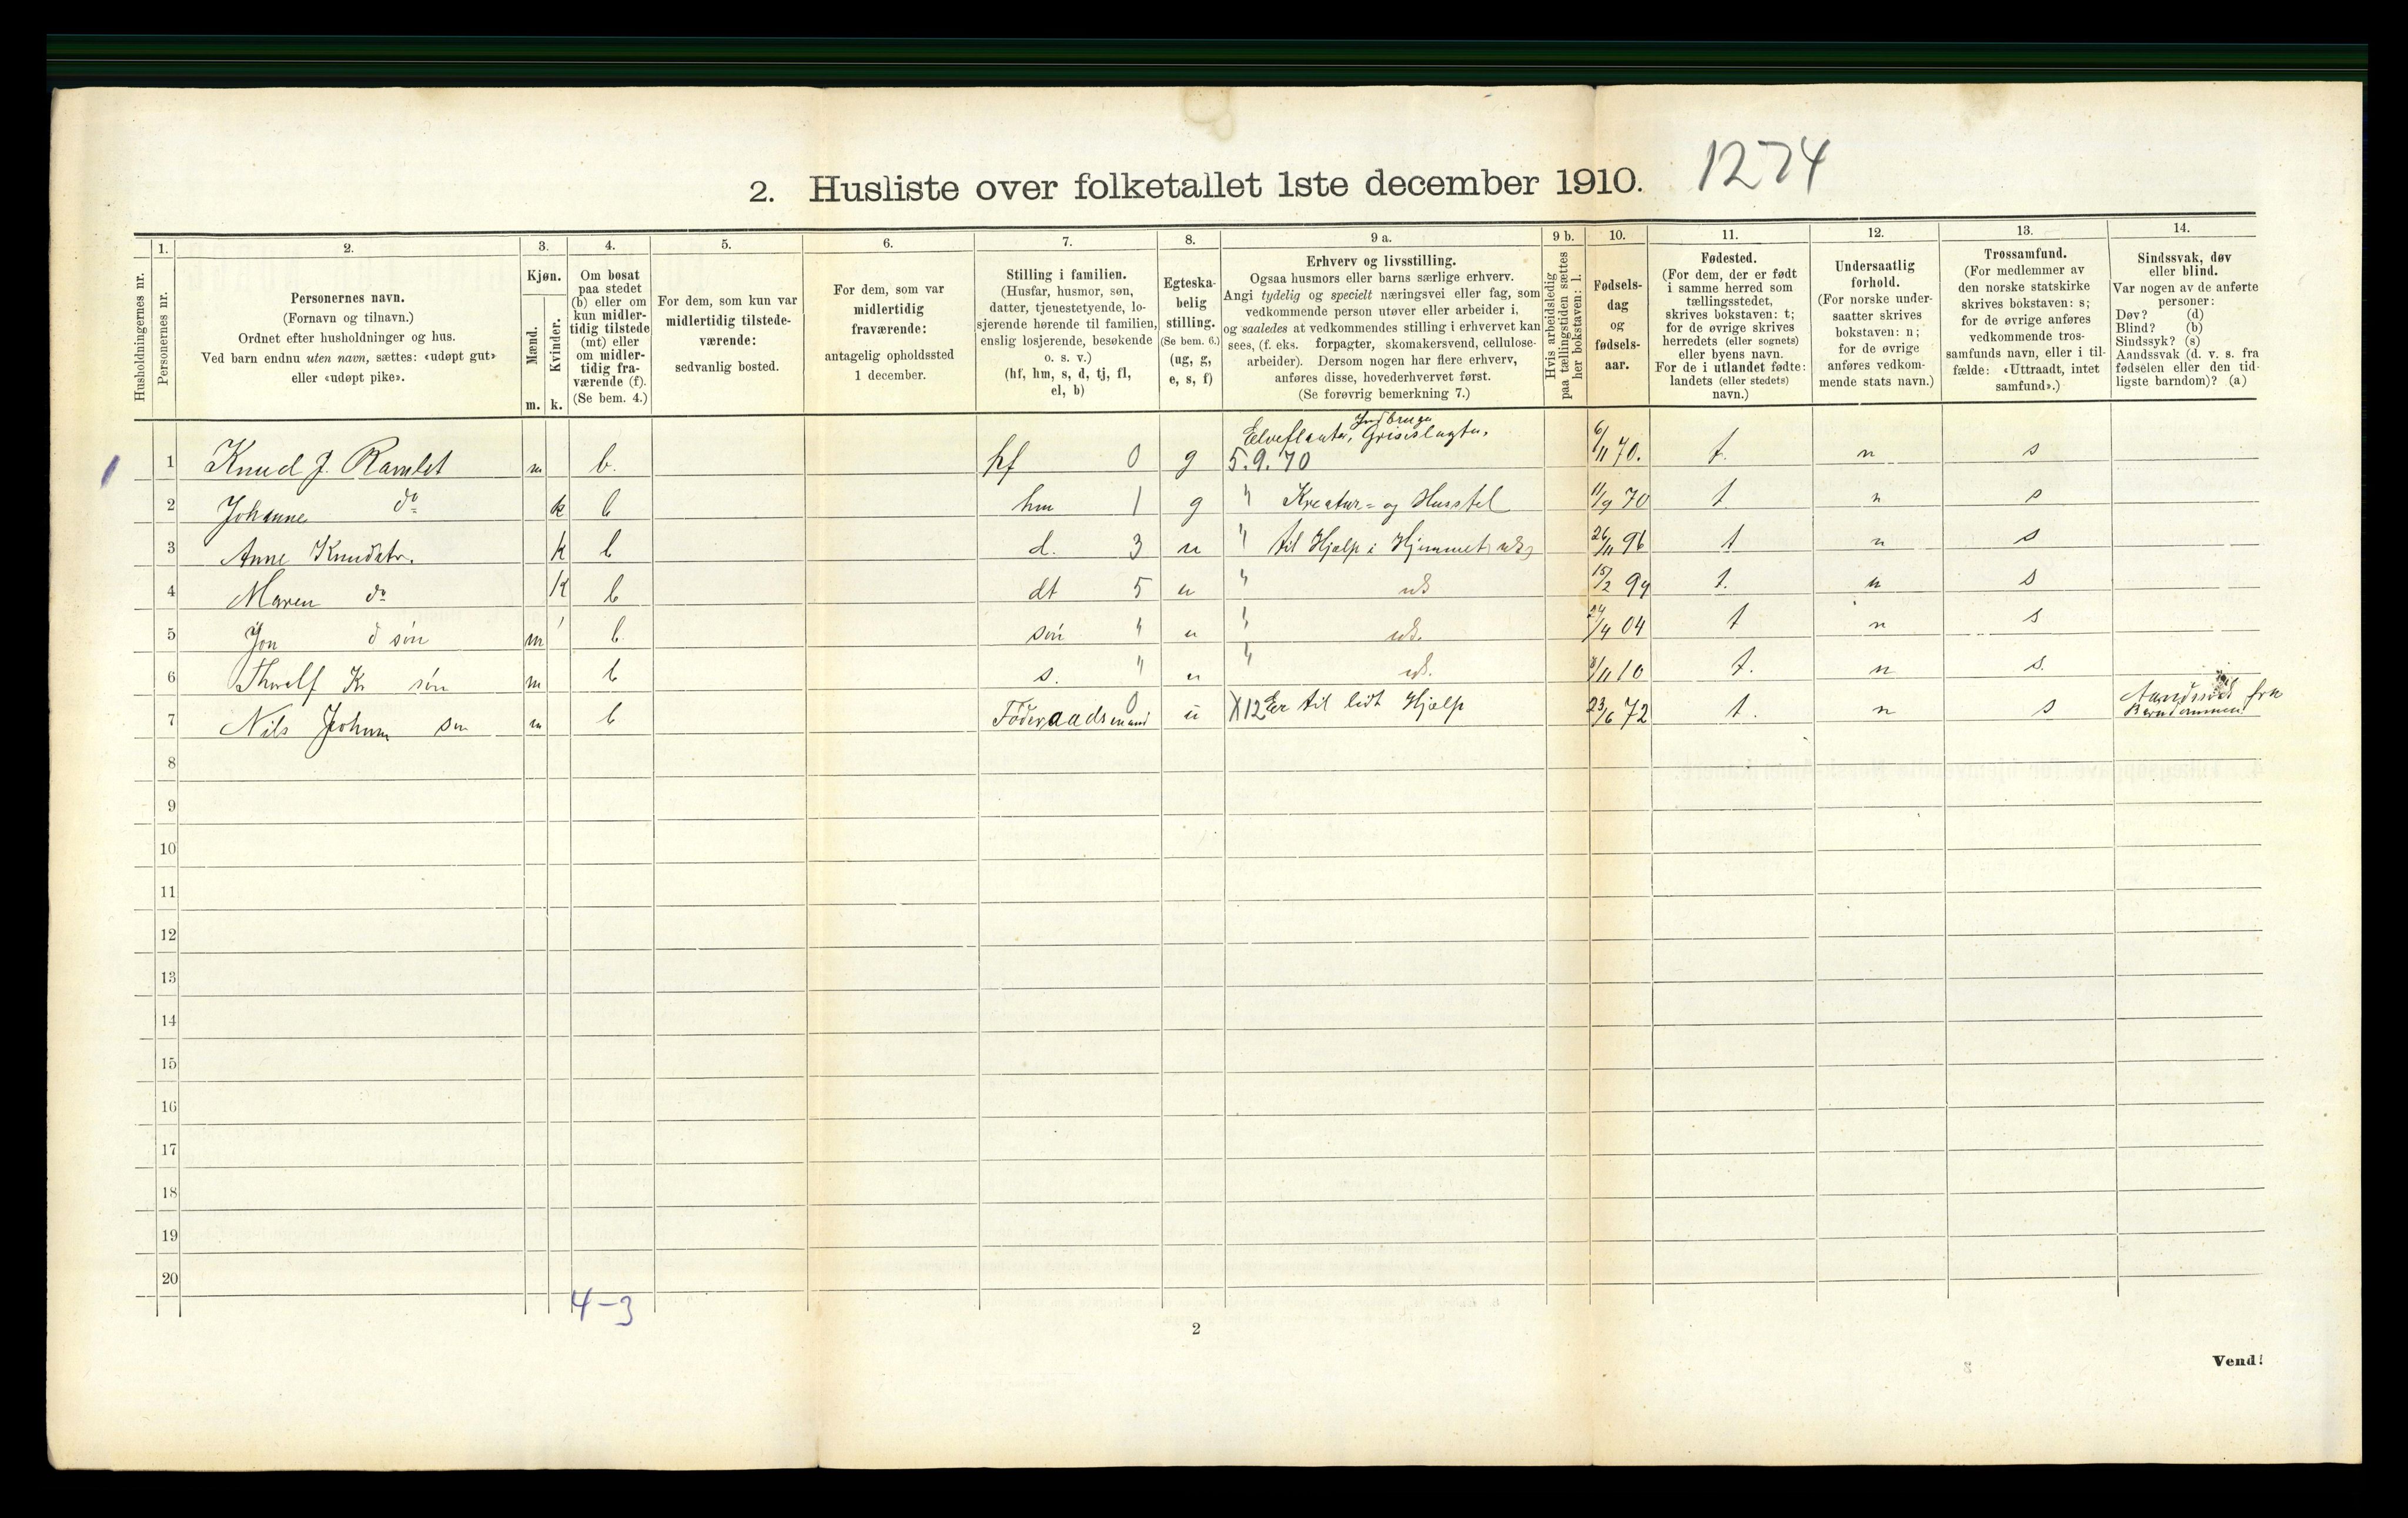 2. Husliste over folketallet 1ste december 1910. 1274
Husholdningernes nr.
1.
Personernes nr.
2.
Personernes navn.
(Fornavn og tilnavn.)
Ordnet efter husholdninger og hus.
Ved barn endnu uten navn, sættes: «udøpt gut»
eller «udøpt pike».
3.
Kjøn.
Mænd.
Kvinder.
m. k.
4.
Om bosat
paa stedet
(b) eller om
kun midler-
tidig tilstede
(mt) eller
om midler-
tidig fra-
værende (f).
(Se bem. 4.)
5.
For dem, som kun var
midlertidig tilstede-
værende:
sedvanlig bosted.
6.
For dem, som var
midlertidig
fraværende:
antagelig opholdssted
1 december.
7.
Stilling i familien.
(Husfar, husmor, søn,
datter, tjenestetyende, lo-
sjerende hørende til familien,
enslig losjerende, besøkende
o. s. v.)
(hf, hm, s, d, tj, fl,
el, b)
8.
Egteska-
belig
stilling.
(Se bem. 6.)
(ug, g,
e, s, f)
9 a.
Erhverv og livsstilling.
Ogsaa husmors eller barns særlige erhverv.
Angi tydelig og specielt næringsvei eller fag, som
vedkommende person utøver eller arbeider i,
og saaledes at vedkommendes stilling i erhvervet kan
sees, (f. eks. forpagter, skomakersvend, cellulose-
arbeider). Dersom nogen har flere erhverv,
anføres disse, hovederhvervet først.
(Se forøvrig bemerkning 7.)
9 b.
Hvis arbeidsledig
paa tællingstiden sættes
her bokstaven: l.
10.
Fødsels-
dag
og
fødsels-
aar.
11.
Fødested.
(For dem, der er født
i samme herred som
tællingsstedet,
skrives bokstaven: t;
for de øvrige skrives
herredets (eller sognets)
eller byens navn.
For de i utlandet fødte:
landets (eller stedets)
navn.)
12.
Undersaatlig
forhold.
(For norske under-
saatter skrives
bokstaven: n;
for de øvrige
anføres vedkom-
mende stats navn.)
13.
Trossamfund.
(For medlemmer av
den norske statskirke
skrives bokstaven: s;
for de øvrige anføres
vedkommende tros-
samfunds navn, eller i til-
fælde: «Uttraadt, intet
samfund».)
14.
Sindssvak, døv
eller blind.
Var nogen av de anførte
personer:
Døv? (d)
Blind? (b)
Sindssyk? (s)
Aandssvak (d. v. s. fra
fødselen eller den tid-
ligste barndom)? (a)
Elvefløuter, Griseslagter,
1 Knud J. Ramlet m b. hf 0 g 5.9.70 6/11 70. t. n s
2 Johanne do k b hm 1 g " Kreatur- og Husstel 11/9 70 t. n s
3 Anne Knudstr. k b d. 3 u " til Hjælp i Hjemmet 26/11 96 t n s
4 Maren do k b dt 5 u " 15/2 99 t. n s
5 Jon d søn m b. søn " u " 24/4 04 t n s
6 Thoralf K søn m b s. " u " /11 10 t. n s.
7 Nils Johann sen m b Føderaadsmand 0 u X12 Er til lidt Hjælp 23/6 72 t. n s Aandssvak fra
Barndommen
8
9
10
11
12
13
14
15
16
17
18
19
20
4-3
2
Vend!